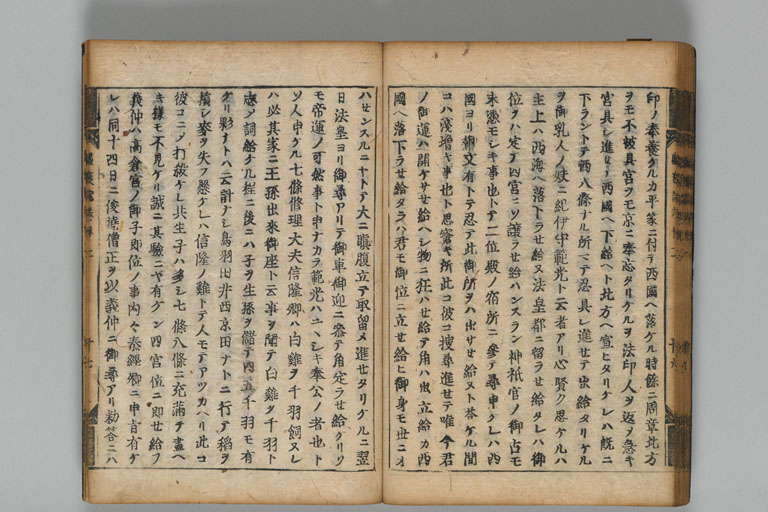 印ノ奉養タルカ平家ニ付テ西國ヘ落ケル時餘ニ周章北方
ヲモ不被具宮ヲモ京ニ奉忘タリケルヲ法印人ヲ返ノ急キ
宮具シ進セテ西國ヘ下給ヘト北方ヘ宣ヒタリケレハ既ニ
下ラントテ西八條ナル所マテ忍具シ進セテ出給タリケル
ヲ御乳人ノ妋ニ紀伊守範光ト云者アリ心賢ク思ケルハ
主上ハ西海ヘ落下ラせ給又法皇都ニ留ラせ給タレハ御
位ヲハ定テ四宮ニソ讓ラせ給ハンスラン神祇官ノ御占モ
末憑モシキ事也トテ二位殿ノ宿所ニ參テ尋申ケレハ西
國ヨリ御文有トテ忍テ此御所ヲハ出サせ給ヌト答ケル間
コハ淺增キ事也ト思奮キ所此コ彼コ搜尋進せテ唯今君
ノ御運ハ開ケサせ給ヘシ物ニ狂ハせ給テ角ハ出立給カ西
國ヘ落下ラせ給タラハ君モ御位ニ立せ給ヒ御身モ世ニオ
ハせンスルニヤトテ大ニ瞋腹立テ取留メ進せタリケルニ翌
日法皇ヨリ御尋アリテ御車御迎ニ參テ角定ラせ給ケリソ
モ帝運ノ可然事ト申ナカラ範光ハユヽシキ奉公ノ者也ト
ソ人申ケル七條修理大夫信隆卿ハ白雞ヲ千羽飼ヌレ
ハ必其家ニ王孫出來御座ト云事ヲ聞テ白雞ヲ千羽ト
志ノ詞給ケル程ニ後ニハ子ヲ生孫ヲ儲テ四五千羽モ有
ケリ夥ナトハ云計ナシ鳥羽田井西京田ナトニ行テ稻ヲ
損シ麥ヲ失フ懸ケレハ信隆ノ雞トテ人モテアツカヘリ此コ
彼コニノ打殺ケレ共生子ハ多シ七條八條ニ充滿テ盡ヘ
キ樣モ不見ケリ誠ニ其驗ニヤ有ケン四宮位ニ即せ給フ
義仲ハ高倉宮ノ御子即位ノ事内々泰經卿ニ申旨有ケ
レハ同十四日ニ俊堯僧正ヲ以義仲ニ御尋アリ勅答ニハ